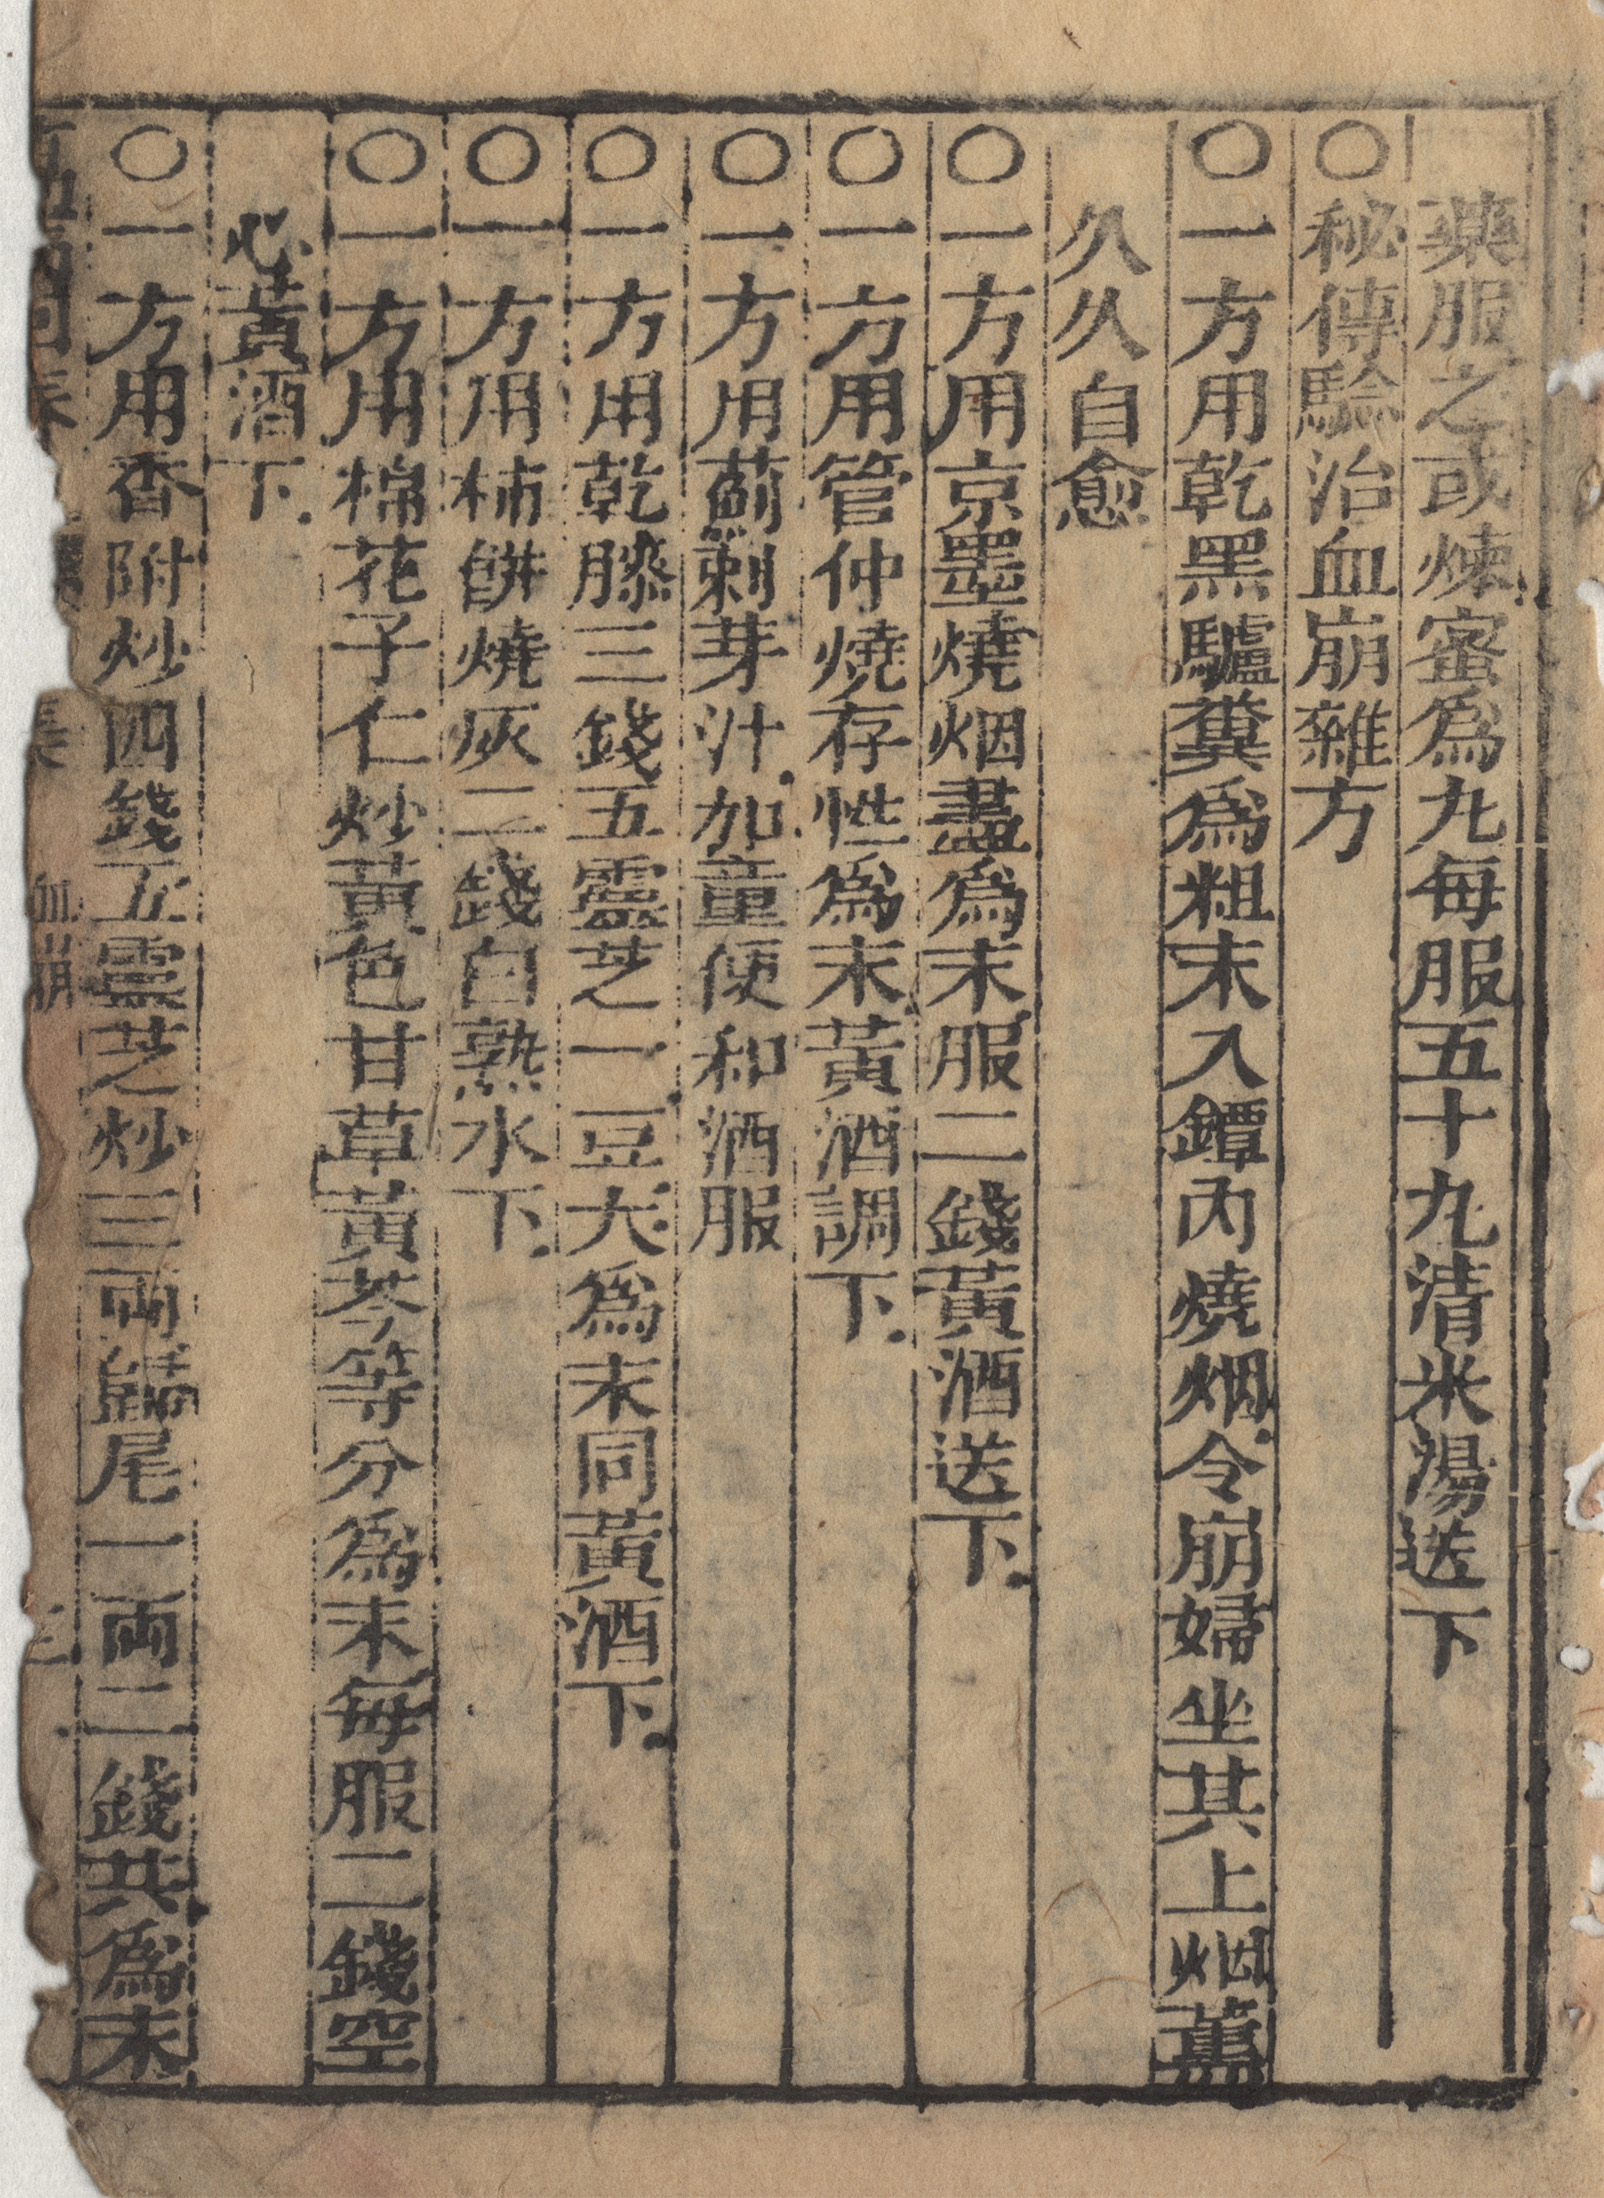 藥服之或煉蜜爲丸每服五十丸清米湯送下
○秘傳驗治血崩雜方
○一方用乾黑驢糞爲粗末入鐔內燒烟令崩婦坐其上烟薰
久久自愈
○一方用京墨燒烟盡爲末服二錢黃酒送下
○一方用管仲燒存性爲末黃酒調下
○一方用薊刺芽汁加童便和酒服
○一方用乾膝三錢五靈芝一豆大爲末同黃酒下
○一方用柿餅燒灰二錢白熟水下
○一方用棉花子仁炒黃色甘草黃芩等分爲末每服二錢空
心黃酒下
○一方用香附炒四錢五靈芝炒三兩歸尾一兩二錢共爲末
血崩